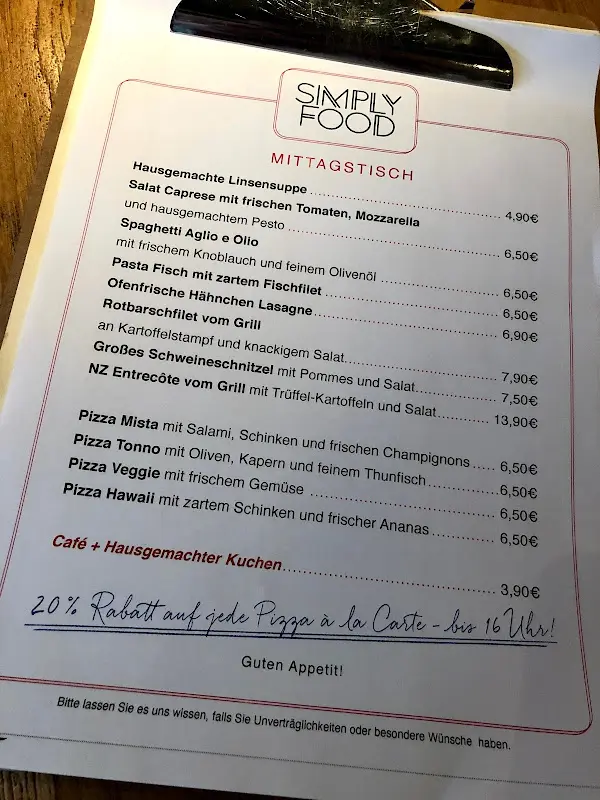 SIMPLY
FOOD
MITTAGSTISCH
Hausgemachte Linsensuppe ........................................ 4,90€
Salat Caprese mit frischen Tomaten, Mozzarella
und hausgemachtem Pesto ........................................ 6,50€
Spaghetti Aglio e Olio
mit frischem Knoblauch und feinem Olivenöl ........................ 6,50€
Pasta Fisch mit zartem Fischfilet ................................ 6,50€
Ofenfrische Hähnchen Lasagne..................................... 6,90€
Rotbarschfilet vom Grill
an Kartoffelstampf und knackigem Salat............................ 7,90€
Großes Schweineschnitzel mit Pommes und Salat................ 7,50€
NZ Entrecôte vom Grill mit Trüffel-Kartoffeln und Salat........... 13,90€
Pizza Mista mit Salami, Schinken und frischen Champignons ..... 6,50€
Pizza Tonno mit Oliven, Kapern und feinem Thunfisch............... 6,50€
Pizza Veggie mit frischem Gemüse ................................ 6,50€
Pizza Hawaii mit zartem Schinken und frischer Ananas ............. 6,50€
Café + Hausgemachter Kuchen........................................ 3,90€
20% Rabatt auf jede Pizza à la Carte - bis 16 Uhr!
Guten Appetit!
Bitte lassen Sie es uns wissen, falls Sie Unverträglichkeiten oder besondere Wünsche haben.